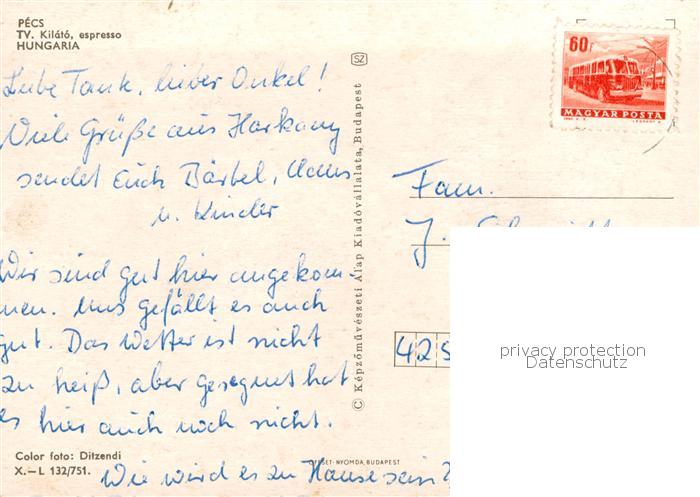 PÉCS
TV. Kilátó, espresso
HUNGARIA
Liebe Tante, lieber Onkel!
Viele Grüße aus Harkany
sendet Euch Bärbel, Claus
u. Kinder
Wir sind gut hier angekom-
men. Uns gefällt es auch
gut. Das Wetter ist nicht
zu heiß, aber geregnet hat
es hier auch noch nicht.
Wie wird es zu Hause sein?
Color foto: Ditzendi
X.—L 132/751.
SZ
© Képzőművészeti Alap Kiadóvállalata, Budapest
OFFSET-NYOMDA, BUDAPEST
60f
MAGYAR POSTA
Fam.
J.
425
privacy protection
Datenschutz